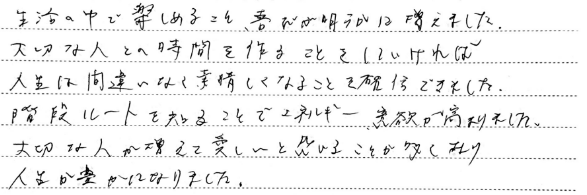 生活の中で楽しめること、喜びが明らかに増えました。
大切な人との時間を作ることをしていければ
人生は間違いなく素晴しくなることを確信できました。
階段ルートを知ることでエネルギー、意欲が高まりました。
大切な人が増えて愛しいと思いることが多くなり
人生が豊かになりました。